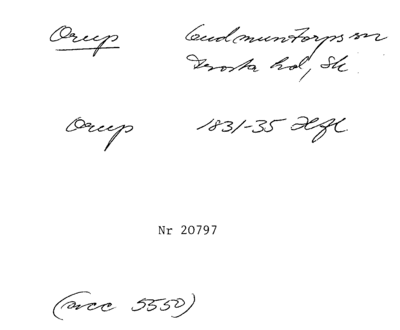 Orup Gudmuntorps sn
Frosta hd, Sk
Orup 1831-35 Hfl
Nr 20797
(acc 5550)